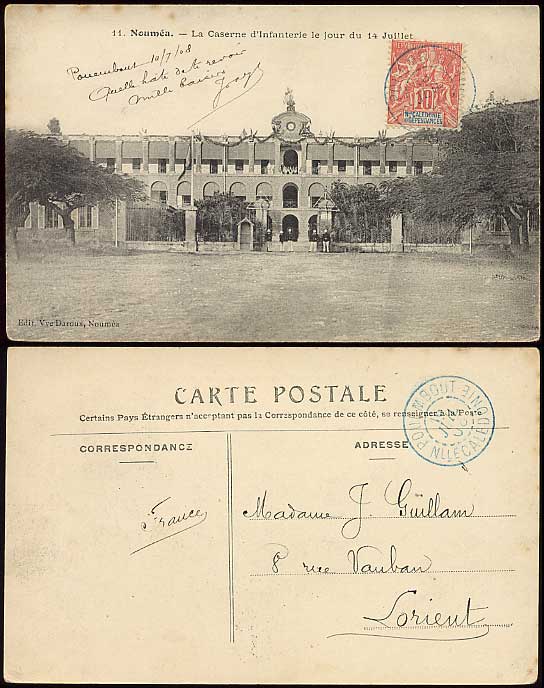 11. Nouméa. — La Caserne d'Infanterie le jour du 14 Juillet
Pouembout 10/7/08
Quelle hâte de te revoir
mille baisers
10
Nlle CALÉDONIE
ET DÉPENDANCES
Edit. Vve Daroux, Nouméa
CARTE POSTALE
Certains Pays Étrangers n'acceptant pas la Correspondance de ce côté, se renseigner à la Poste
CORRESPONDANCE
ADRESSE
POUEMBOUT
NLLE CALÉDONIE
France
Madame J. Guillam
8 rue Vauban
Lorient